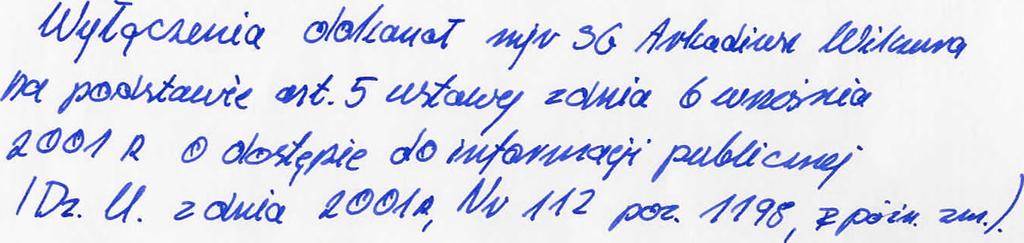 Wyłączenia dokonał mjr SG Arkadiusz Wilczura
na podstawie art. 5 ustawy z dnia 6 września
2001 R o dostępie do informacji publicznej
/Dz. U. z dnia 2001R, Nr 112 poz. 1198, z późn. zm.).